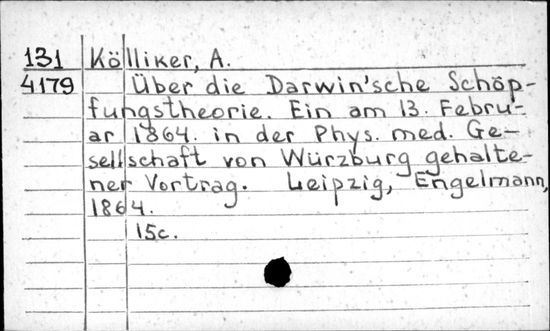 131 Kölliker, A.
4179 Über die Darwin'sche Schöp-
fungstheorie. Ein am 13. Febru-
ar 1864. in der Phys. med. Ge-
sellschaft von Würzburg gehalte-
ner Vortrag. Leipzig, Engelmann,
1864.
15c.